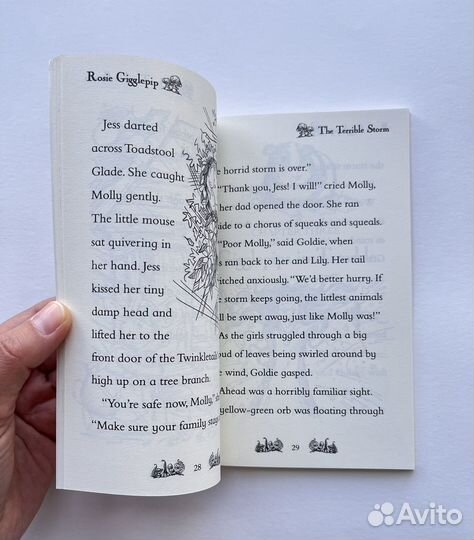 Rosie Gigglepip
Jess darted
across Toadstool
Glade. She caught
Molly gently.
The little mouse
sat quivering in
her hand. Jess
kissed her tiny
damp head and
lifted her to the
front door of the Twinkletail
high up on a tree branch.
"You're safe now, Molly,"
"Make sure your family stay
28
The Terrible Storm
e horrid storm is over."
"Thank you, Jess! I will!" cried Molly,
her dad opened the door. She ran
ide to a chorus of squeaks and squeals.
"Poor Molly," said Goldie, when
s ran back to her and Lily. Her tail
itched anxiously. "We'd better hurry. If
e storm keeps going, the littlest animals
ll be swept away, just like Molly was!"
As the girls struggled through a big
oud of leaves being swirled around by
e wind, Goldie gasped.
Ahead was a horribly familiar sight.
yellow-green orb was floating through
29
Avito